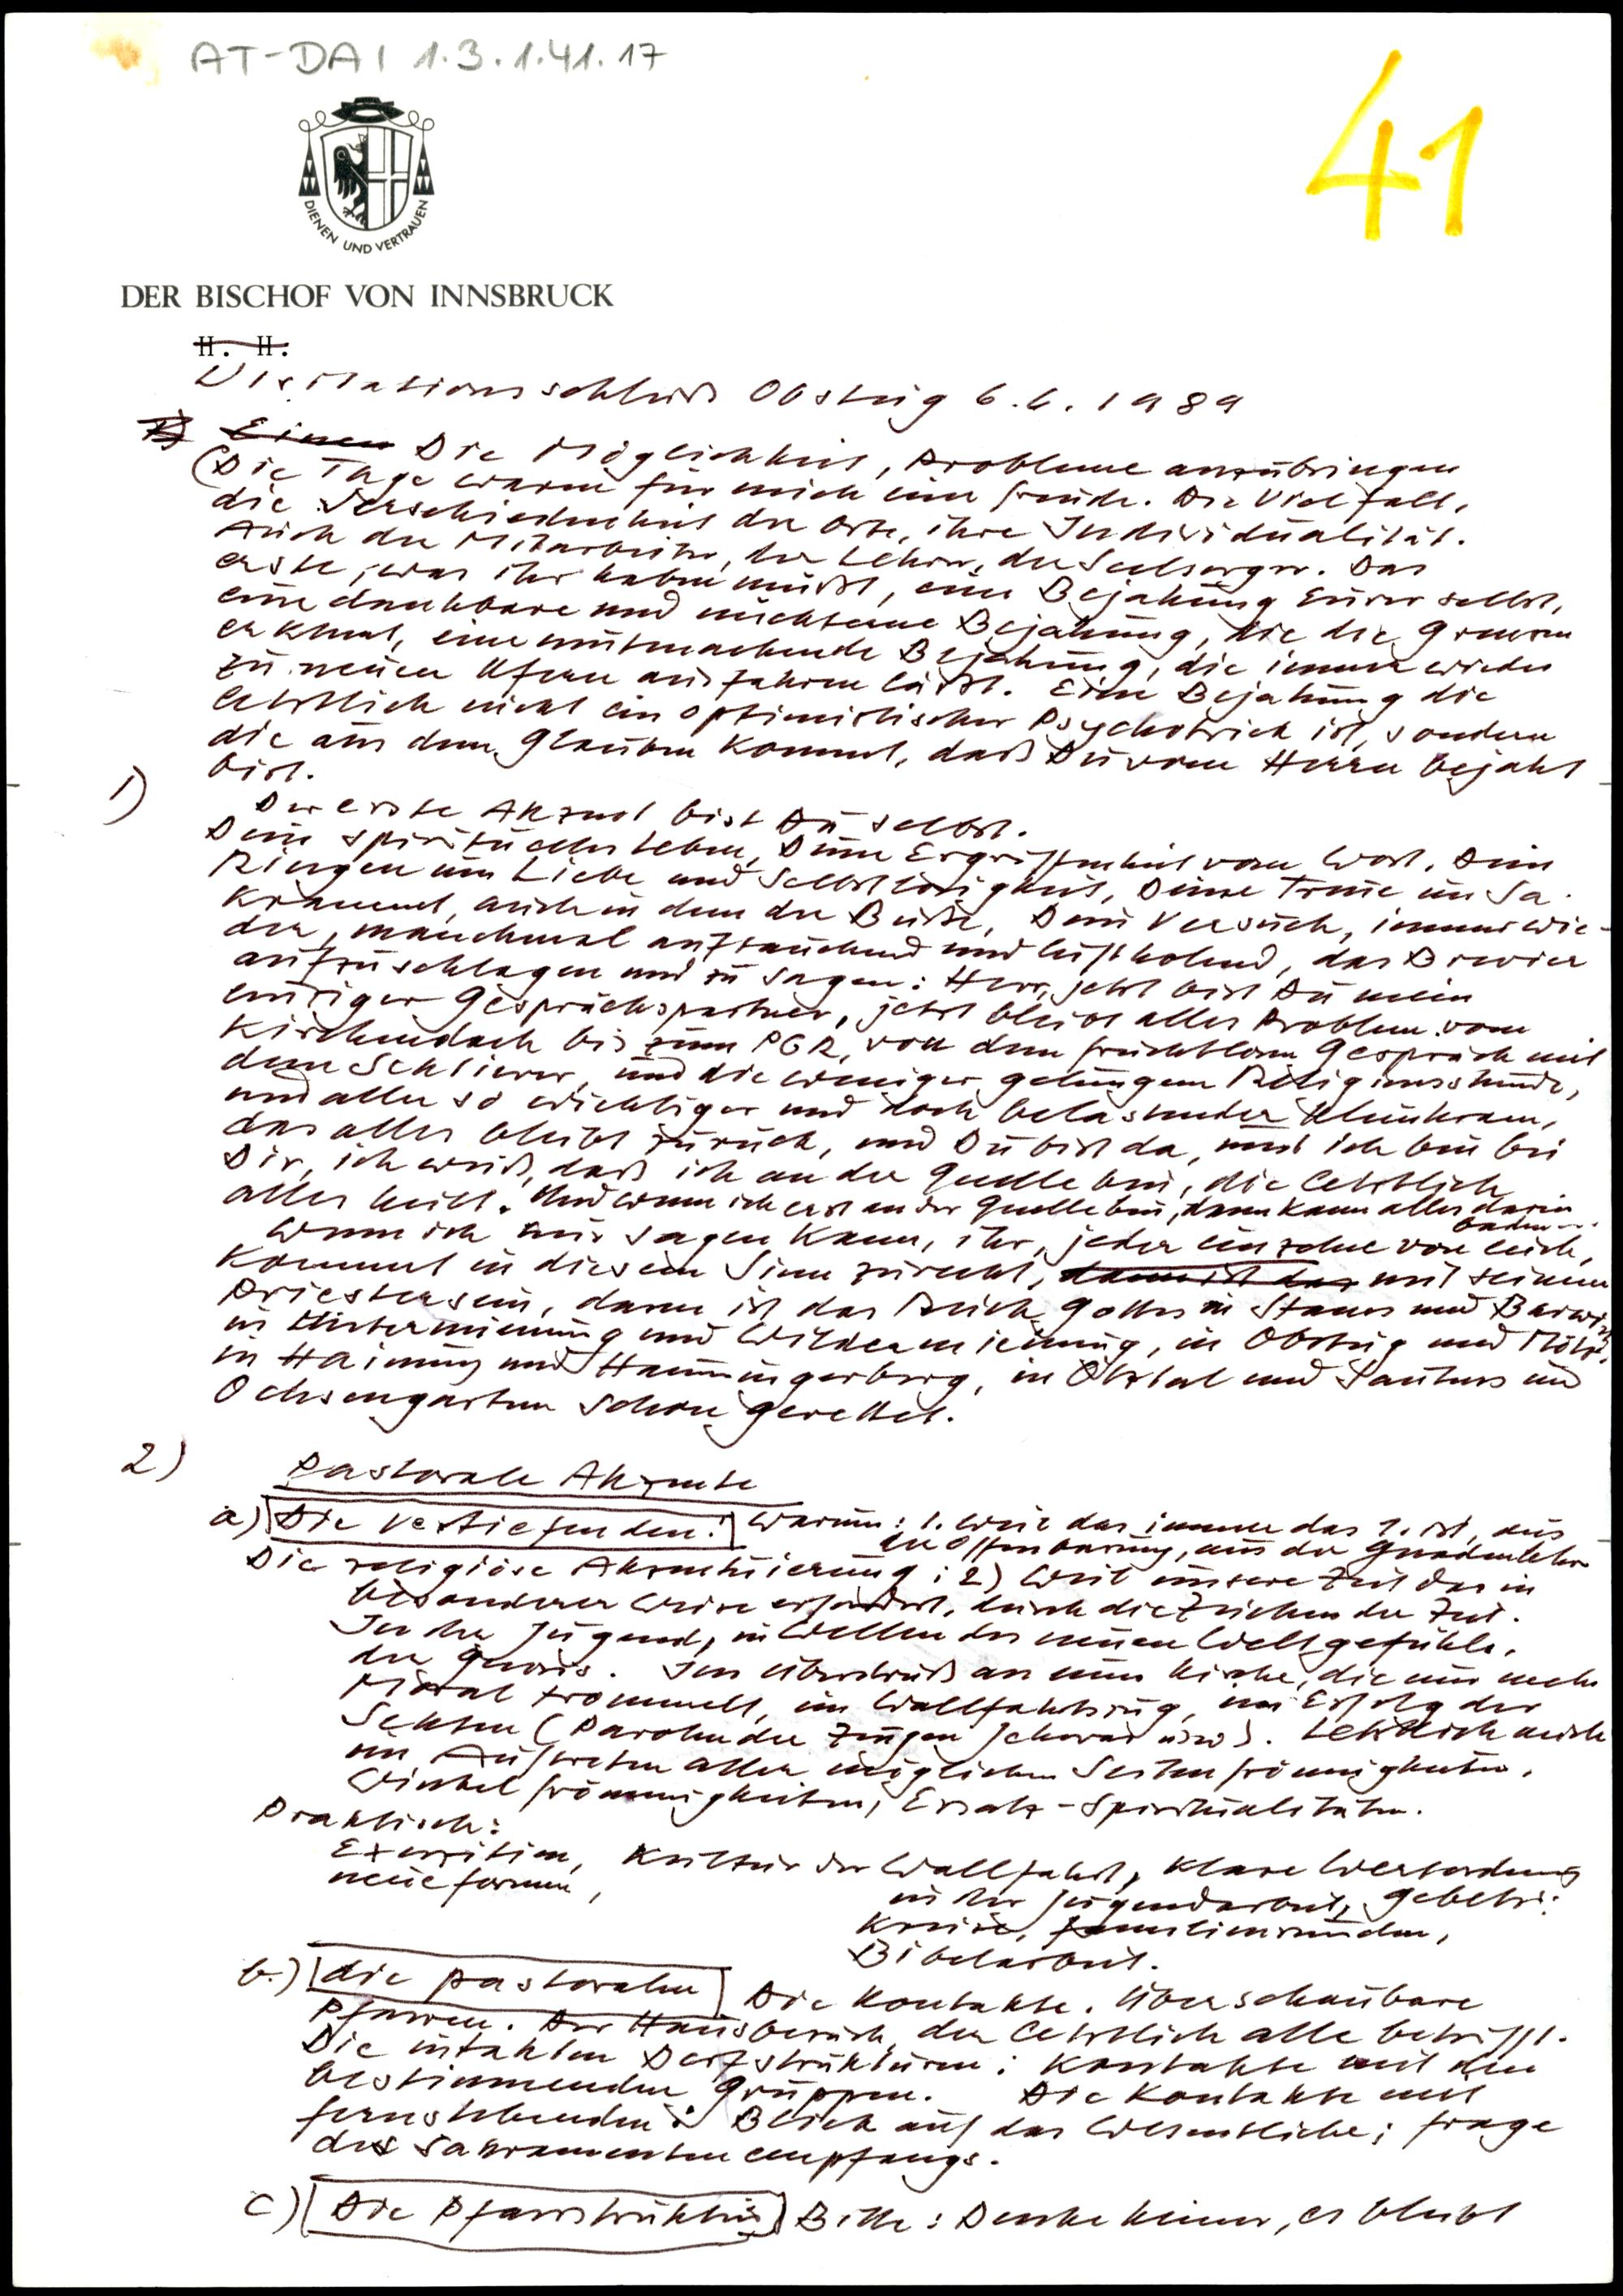 AT-DAI 1.3.1.41.17
41
DIENEN UND VERTRAUEN
DER BISCHOF VON INNSBRUCK
H. H.
Visitationsschluß Obsteig 6.6.1989
1) Einen Die Möglichkeit, Probleme anzubringen
(Die Tage waren für mich eine Freude. Die Vielfalt,
die Verschiedenheit der Orte, ihre Individualität.
Auch der Mitarbeiter, der Lehrer, der Seelsorger. Das
erste, was ihr haben müßt, eine Bejahung Eurer selbst,
eine dankbare und nüchterne Bejahung, die die Grenzen
erkennt, eine mutmachende Bejahung, die immer wieder
zu neuen Ufern ausfahren läßt. Eine Bejahung die
letztlich nicht ein optimistischer Psychotrick ist, sondern
die aus dem Glauben kommt, daß Du vom Herrn bejaht
bist.
1)
Der erste Akzent bist Du selbst.
Dein spirituelles Leben, Deine Ergriffenheit vom Wort. Dein
Ringen um Liebe und Selbstlosigkeit, Deine Treue im Sa-
krament, auch in dem der Buße, Dein Versuch, immer wie-
der, manchmal auftauchend und luftholend, das Brevier
aufzuschlagen und zu sagen: Herr, jetzt bist Du mein
einziger Gesprächspartner, jetzt bleibt alles Problem vom
Kirchendach bis zum PGR, von dem fruchtlosen Gespräch mit
dem und die weniger gelungene Religionsstunde,
und aller so wichtiger und doch belastender Kleinkram,
das alles bleibt zurück, und Du bist da, und ich bin bei
Dir, ich weiß, daß ich an der Quelle bin, die letztlich
alles heilt. Und wenn ich erst an der Quelle bin, dann kann alles darin
baden...
Wenn ich nur sagen kann, ihr, jeder einzelne von euch,
kommt in diesem Sinn zurecht, dann ist das mit seinem
Priestersein, dann ist das Reich Gottes in Stams und Barwies
in Untermieming und Wildermieming, in Obsteig und Mötz,
in Haiming und Haimingerberg, in Ötztal und Sautens und
Ochsengarten schon gerettet.
2)
Pastorale Akzente
a) Die Vertiefenden: Warum: 1. Weil das immer das 1. ist, aus
der Offenbarung, aus der Gnadenlehre
Die religiöse Akzentuierung: 2) Weil unsere Zeit das in
besonderer Weise erfordert, durch die Zeichen der Zeit.
In der Jugend, in Wellen des neuen Weltgefühls,
der Gnosis. Im Überdruß an einer Kirche, die nur mehr
Moral trommelt, im Wallfahrtszug, im Erfolg der
Sekten (Parolen der Zeugen Jehovas usw). Letztlich auch
im Auftreten aller möglichen Seitenfrömmigkeiten,
Winkelfrömmigkeiten, Ersatz-Spiritualitäten.
Praktisch:
Exerzitien, Kultur der Wallfahrt, klare Werteordnung
neue Formen, in der Jugendarbeit, Gebets-
kreise, Familienrunden,
Bibelarbeit.
b.) die pastoralen Die Kontakte. Überschaubare
Pfarren. Der Hausbesuch, der letztlich alle betrifft.
Die intakten Dorfstrukturen: Kontakte mit den
bestimmenden Gruppen. Die Kontakte mit
Fernstehenden: Blick auf das Wesentliche; Frage
des Sakramentenempfangs.
c) Die Pfarrstruktur Bitte: Denke keiner, es bleibt